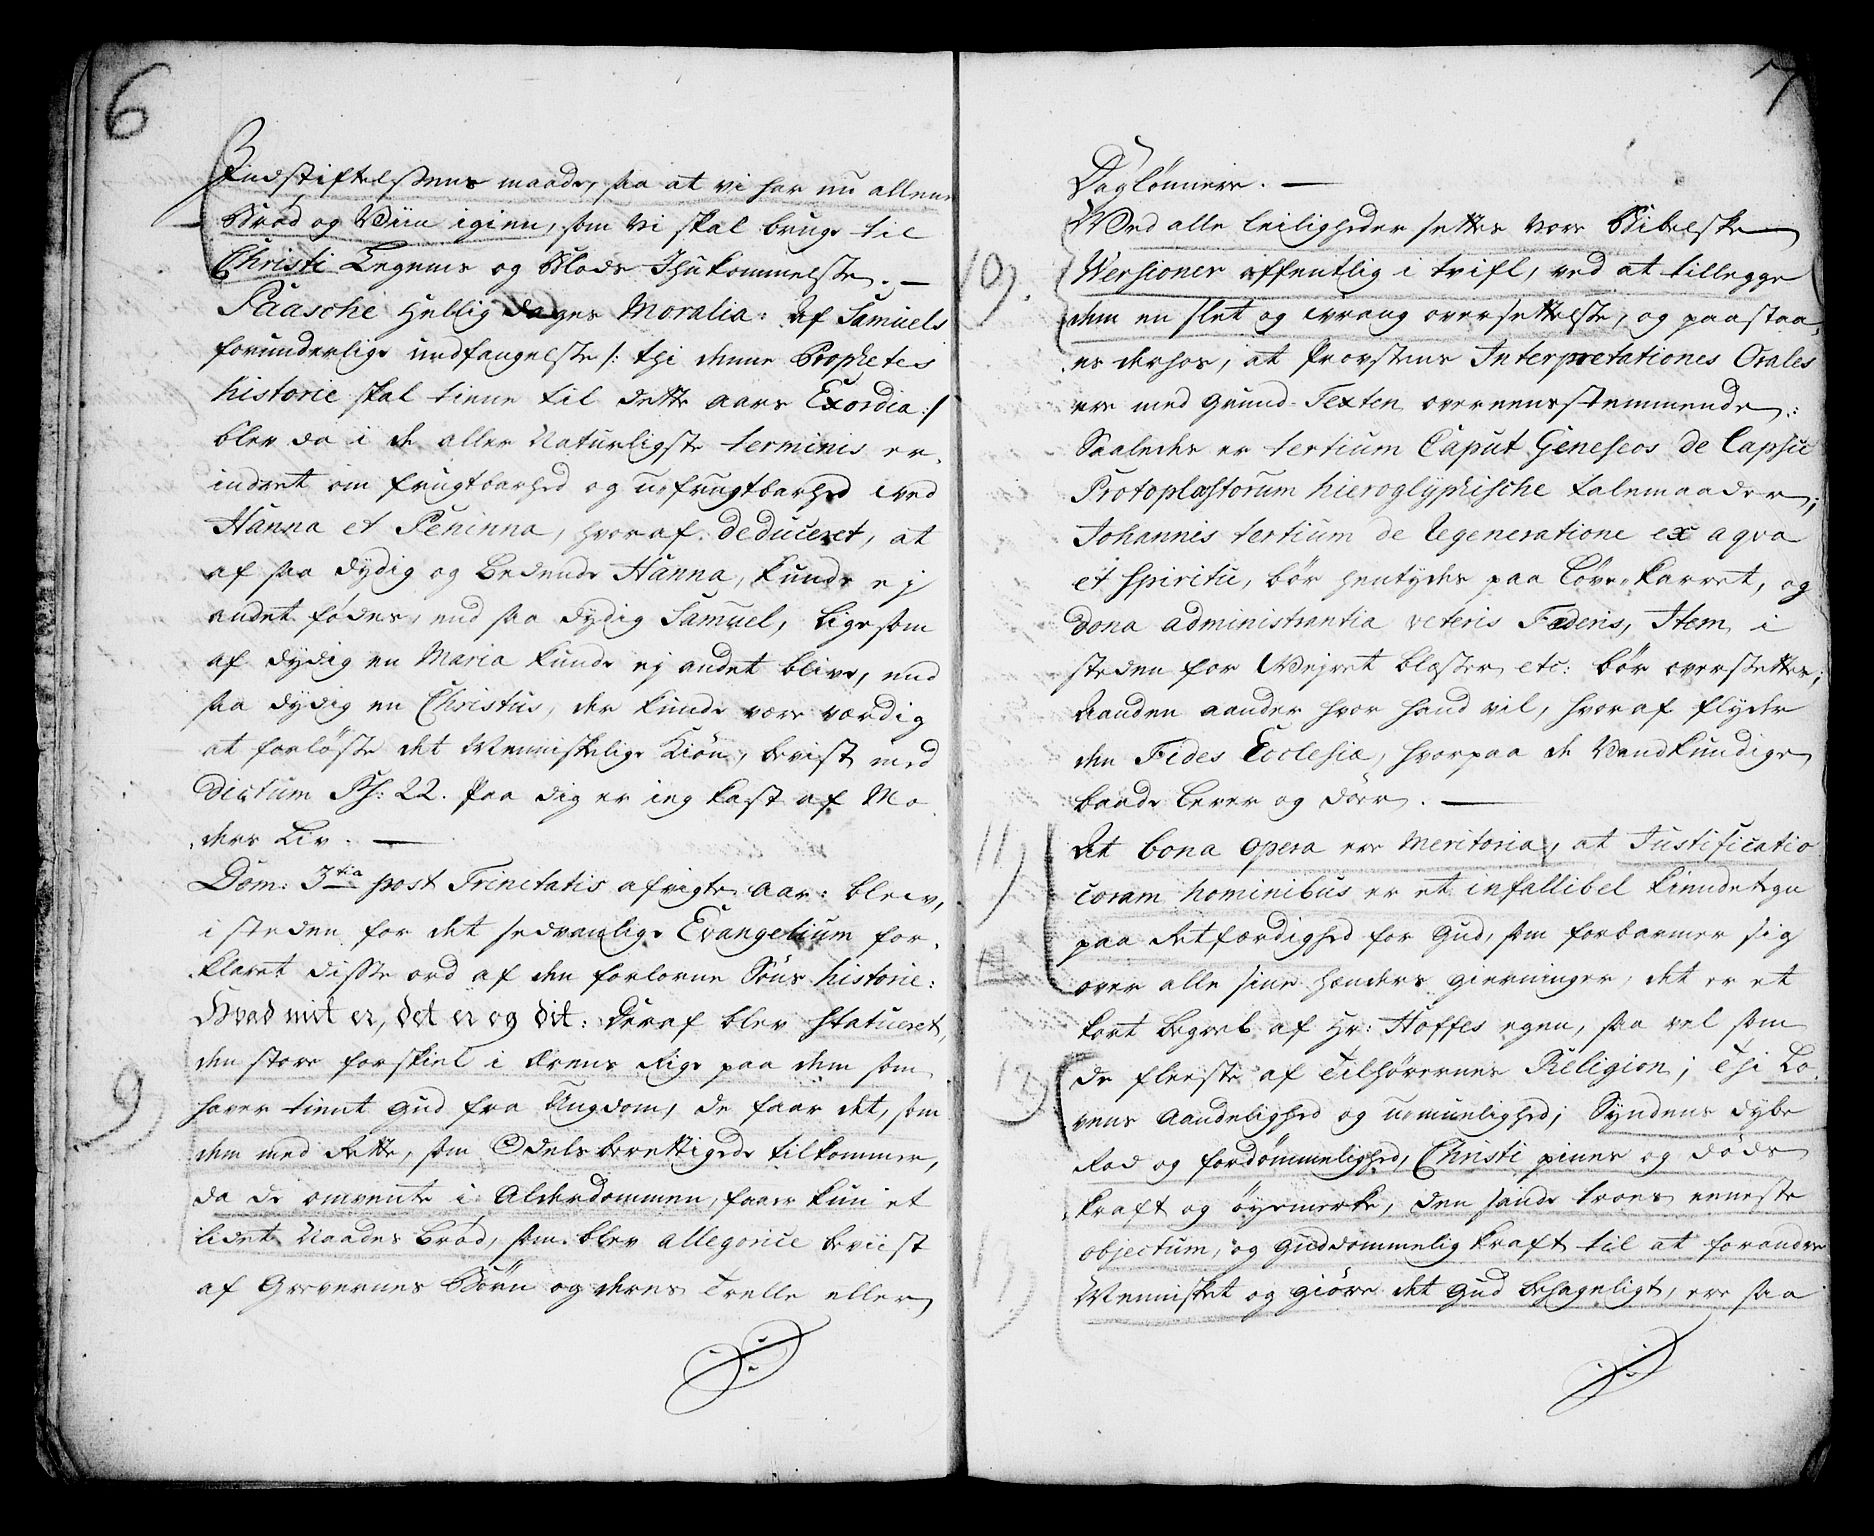 6
Indstiftelsens maade, saa at vi har nu allene
Brød og Viin igien, som vi skal bruge til
Christi Legems og Blods Ihukommelse. —
Paasche Hellig dages Moralia: Af Samuels
forunderlige undfangelse /: thi denne Prophetes
historie skal tiene til dette aars Exordia :/
blev da i de aller Naturligste terminis er-
indret om frugtbarhed og ufrugtbarhed ved
Hanna et Peninna, hvoraf deduceret, at
af saa dydig og bedende Hanna, kunde ej
andet fødes, end saa dydig Samuel, ligesom
af dydig en Maria kunde ej andet blive, end
saa dydig en Christus, der kunde være værdig
at forløse det Menniskelige Kiøn, bevist med
dictum Ps: 22. Paa dig er ieg kast af Mo-
ders Liv. —
Dom: 3tia post Trinitatis afvigte aar: blev,
i steden for det sedvanlige Evangelium for-
klaret disse ord af den forlorne Søns historie:
Hvad mit er, det er og dit: Deraf blev statueret,
9)
den store forskiel i Ærens Rige paa dem som
haver tient Gud fra Ungdom, de faar det, som
dem med Rette, som Odelsberettigede tilkommer,
da de omvente i Alderdommen, faaer kun et
lidet Naades brød, som blev allegorice beviist
af Grevernes Børn og deres Trelle eller
7
Dagslønnere. —
Ved alle leiligheder settes vore Bibelske
10).
Versioner offentlig i tvifl, ved at tillegge
dem en slet og vrang oversettelse, og paastaa-
es derhos, at Provstens Interpretationes Orales
ere med Grund-Texten overeensstemmende:
Saaledes er tertium Caput Geneseos de Lapsu
Protoplastorum hieroglyphische talemaader;
Johannis tertium de Regeneratione ex aqva
et spiritu, bør hentydes paa Løve-karret, og
dona administrantia veteris Fæderis, Item i
steden for Vejret blæser etc: bør oversettes;
Aanden aander hvor hand vil, hvoraf flyder
den Fides Ecclesiæ, hvorpaa de Vandkundige
baade lever og döer. —
11)
At bona opera ere Meritoria, at Justificatio
coram hominibus er et infallibel kiendetegn
paa Retfærdighed for Gud, som forbarmer sig
over alle sine hænders gierninger, det er et
kort begreb af Hr: Hoffes egen, saa vel som
12)
de fleeste af Tilhørernes Religion; Thi Lo-
vens Aandelighed og umuelighed; Syndens dybe
Rod og fordømmelighed, Christi piines og døds
kraft og øyemerke, den sande troes eeneste
objectum, og guddommelig kraft til at forandre
Mennisket og giøre det Gud behageligt, ere saa